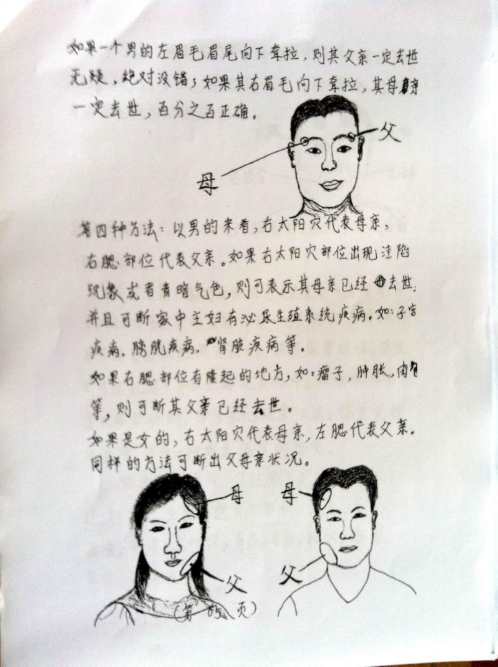 如果一个男的左眉毛眉尾向下牵拉，则其父亲一定去世
无疑，绝对没错；如果其右眉毛向下牵拉，其母亲
一定去世，百分之百正确。
父
母
第四种方法：以男的来看，右太阳穴代表母亲，
右腮部位代表父亲。如果右太阳穴部位出现洼陷
现象或者青暗气色，则可表示其母亲已经去世，
并且可断家中主妇有泌尿生殖系统疾病。如：子宫
疾病，膀胱疾病，肾脏疾病等。
如果右腮部位有隆起的地方，如：瘤子，肿胀，肉
等，则可断其父亲已经去世。
如果是女的，右太阳穴代表母亲，左腮代表父亲。
同样的方法可断出父母亲状况。
母
母
父
父
(第 页)